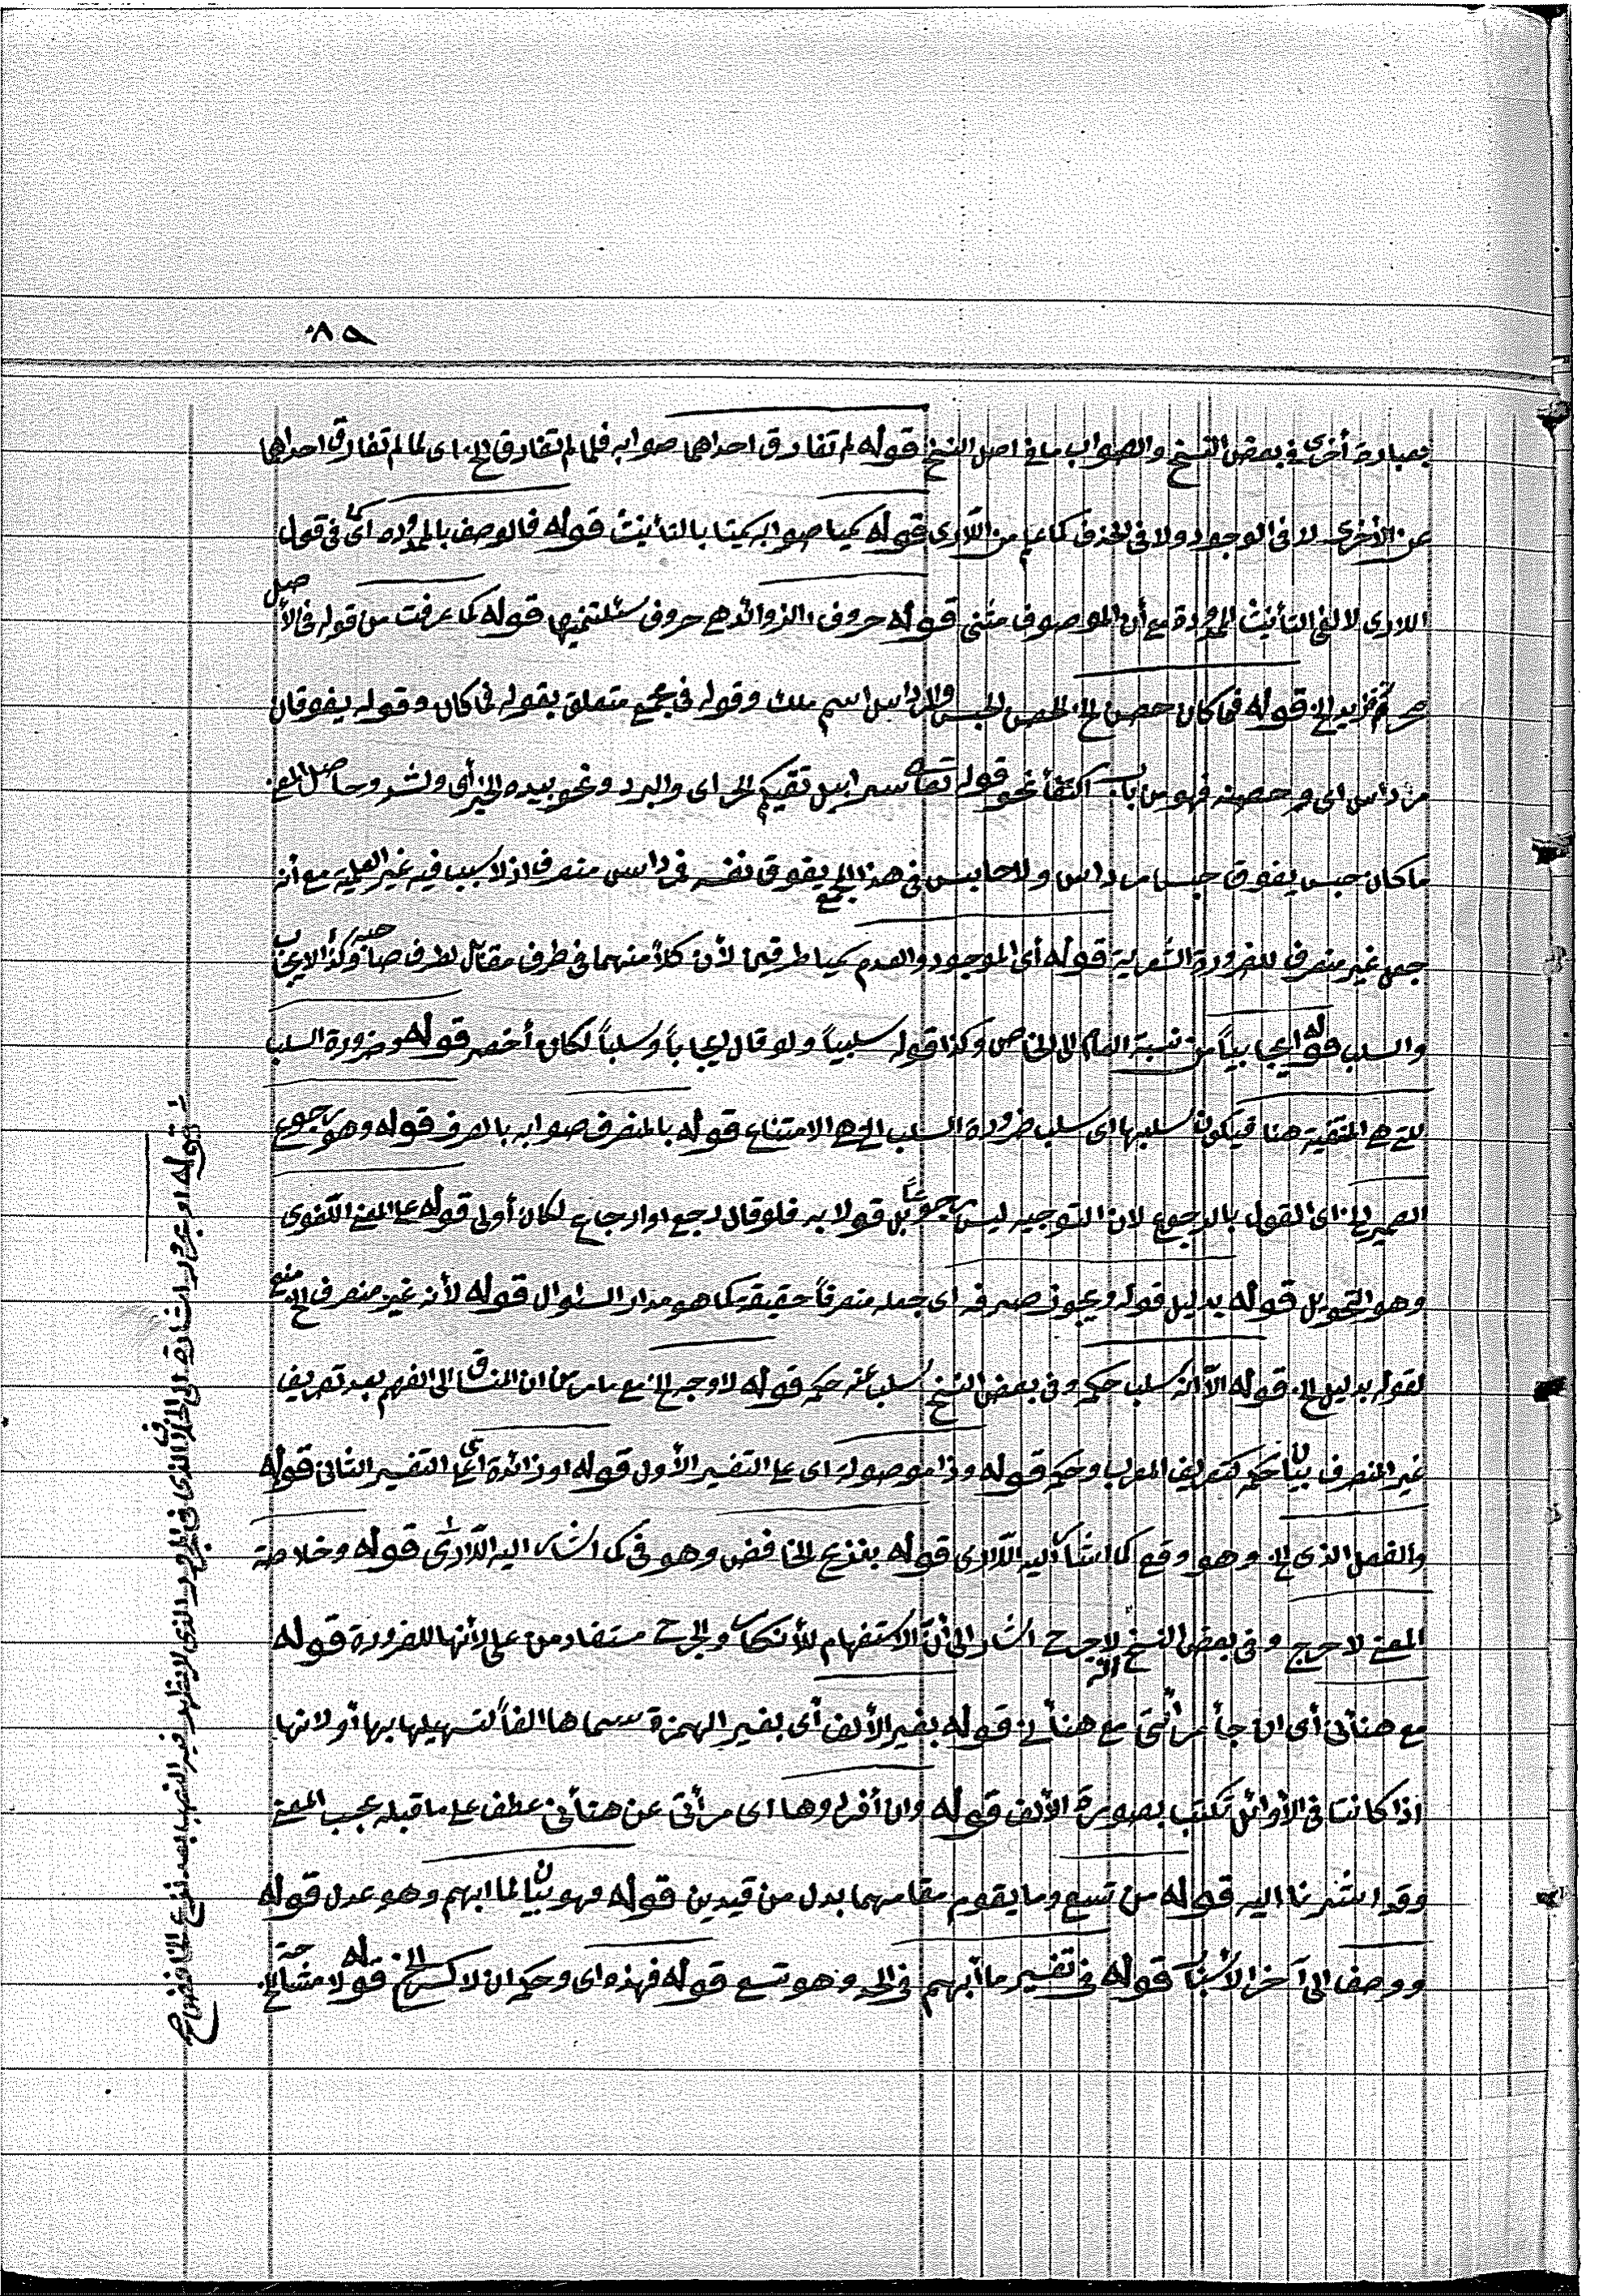 ٨٥
بعبارة أخرى في بعض النسخ والصواب ما في اصل النسخ قوله لم تفارق احداهما صوابه فلما لم تفارق الخ اى لما لم تفارق احداهما
عن الأخرى لا في الوجود ولا في الحذف كما علم من اللارى قوله كميا صوابه كميتا بالتأنيث قوله فالوصف بالممدوده اى في قول
اللارى لا لفى التأنيث الممدودة مع أن الموصوف مثنى قوله حروف الزوائد هي حروف سئلتنيها قوله كما عرفت من قوله في الأصل
قوله فما كان حصن الخ الحصن الحبس ومرداس اسم ملك وقوله في مجمع متعلق بقوله في كان وقوله يفوقان
مرداس اى وحصنه فهو من باب اكتفأ نحو قوله تعا سرابيل تقيكم الحر اى والبرد ونحو بيده الخير أى والشر وحاصل المعنى
ما كان حبس يفوق حبس مرداس ولا حابس في هذا المجمع يفوق نفسه فمرداس منصرف اذ لا سبب فيه غير العلمية مع أنه
جعل غير منصرف للضرورة الشعرية قوله أى الموجود والعدم كميا طرفيها لأن كلا منهما في طرف مقابل لطرف صاحبه وكذا الايجاب
والسلب قوله ايجابياً من نسبة العام الى الخاص وكذا قوله سلبياً ولو قال ايجاباً وسلباً لكان أخصر قوله وضرورة السلب
التي هي المنفية هنا فيكون سلبها اى سلب ضرورة السلب الخ هي الامتناع قوله بالمنصرف صوابه بالصرف قوله وهو رجوع
الضمير الخ اى القول بالرجوع لان التوجيه ليس رجوعاً بل قولا به فلو قال ارجع او ارجاع لكان أولى قوله على المعنى اللغوى
وهو التحويل قوله بدليل قوله ويجوز صرفه اى جعله منصرفاً حقيقة كما هو مدار السئوال قوله لأنه غير منصرف الخ منع
لقوله بدليل الخ قوله الا أنه سلب حكمه وفي بعض النسخ سلب عنه حكمه قوله لا وجه الخ مع ما مر من ان المنساق الى الفهم بعد تعريف
غير المنصرف بيان حكمه كتعريف المعرب وحكمه قوله وذا موصولة اى على التفسير الأول قوله او زائدة اى على التفسير الثانى قوله
والفعل الذى الخ وهو وقع كما اشار اليه اللارى قوله بنزع الخافض وهو في كما اشار اليه اللارى قوله وخلاصة
المعنى لا حرج وفي بعض النسخ لا جرح اشار الى أن الاستفهام للأنكار والجرح مستفاد من على لأنها للضرورة قوله
مع هنأنى أى ان جأ مرأنى مع هنأنى قوله بغير الألف أى بغير الهمزة سماها الفاً لتسهيلها بها أو لانها
اذا كانتا في الأوائل تكتب بصورة الألف قوله وان أفردوها اى مرأنى عن هنأنى عطف على ما قبله بحسب المعنى
وقد اشرنا اليه قوله من تسع وما يقوم مقامهما بدل من قيدين قوله فهو بيان لما ابهم وهو عدل قوله
ووصف الى آخر الأسباب قوله في تفسير ما أبهم في الحد وهو تسع قوله فهذه اى وحكمه ان لا كسر الخ قوله لا مشاحة الخ
قوله او مجرور اشارة الى الحرف الذى في المجرور الذى لا يظهر فيه النصب بعد نزع الخافض صح